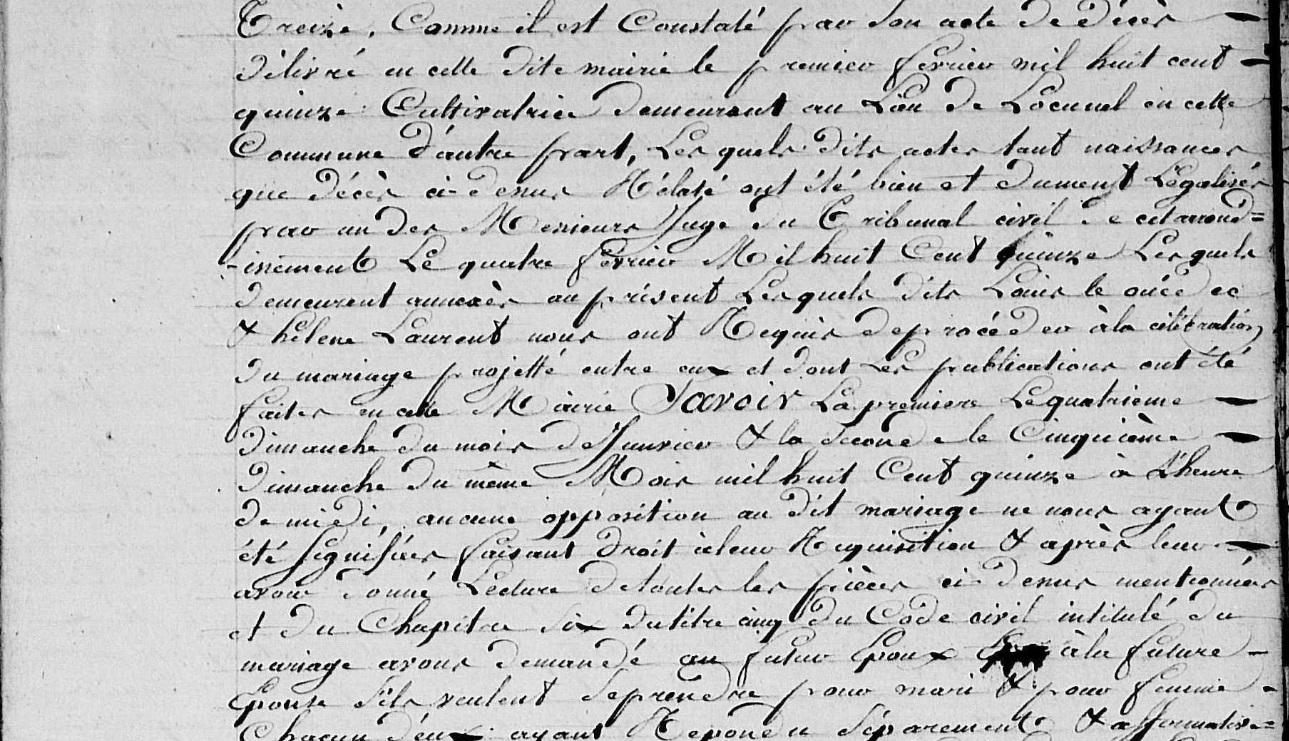 Treize, Comme il est Constaté par son acte de décès
délivré en cette dite mairie le premier février mil huit cent
quinze Cultivatrice demeurant au Lieu de Locunel en cette
Commune d'autre part, Lesquels dits actes tant naissances
que décès ci-dessus Rélaté ont été bien et dument Légalisés
par un des Messieurs Juge du Tribunal civil de cet arrond=
-issement Le quatre février Mil huit Cent quinze Lesquels
demeurent annexés au présent Lesquels dits Louis le
& héléne Laurent nous ont Requis de procéder à la célébration
du mariage projetté entre eux et dont les publications ont été
faites en cette Mairie Savoir La premiere Le quatrieme
dimanche du mois de Janvier & la seconde le Cinquième
dimanche du même Mois mil huit Cent quinze à L'heure
de midi, aucune opposition au dit mariage ne nous ayant
été signifiées faisant droit à leur Requisition & après leur
avoir donné Lecture de toutes les pièces ci-dessus mentionnées
et du Chapitre six du titre cinq du Code civil intitulé du
mariage avons demandé au futur Epoux à la future
Epouse s'ils veulent se prendre pour mari & pour femme
Chacun d'eux ayant Repondu séparement & affirmative=